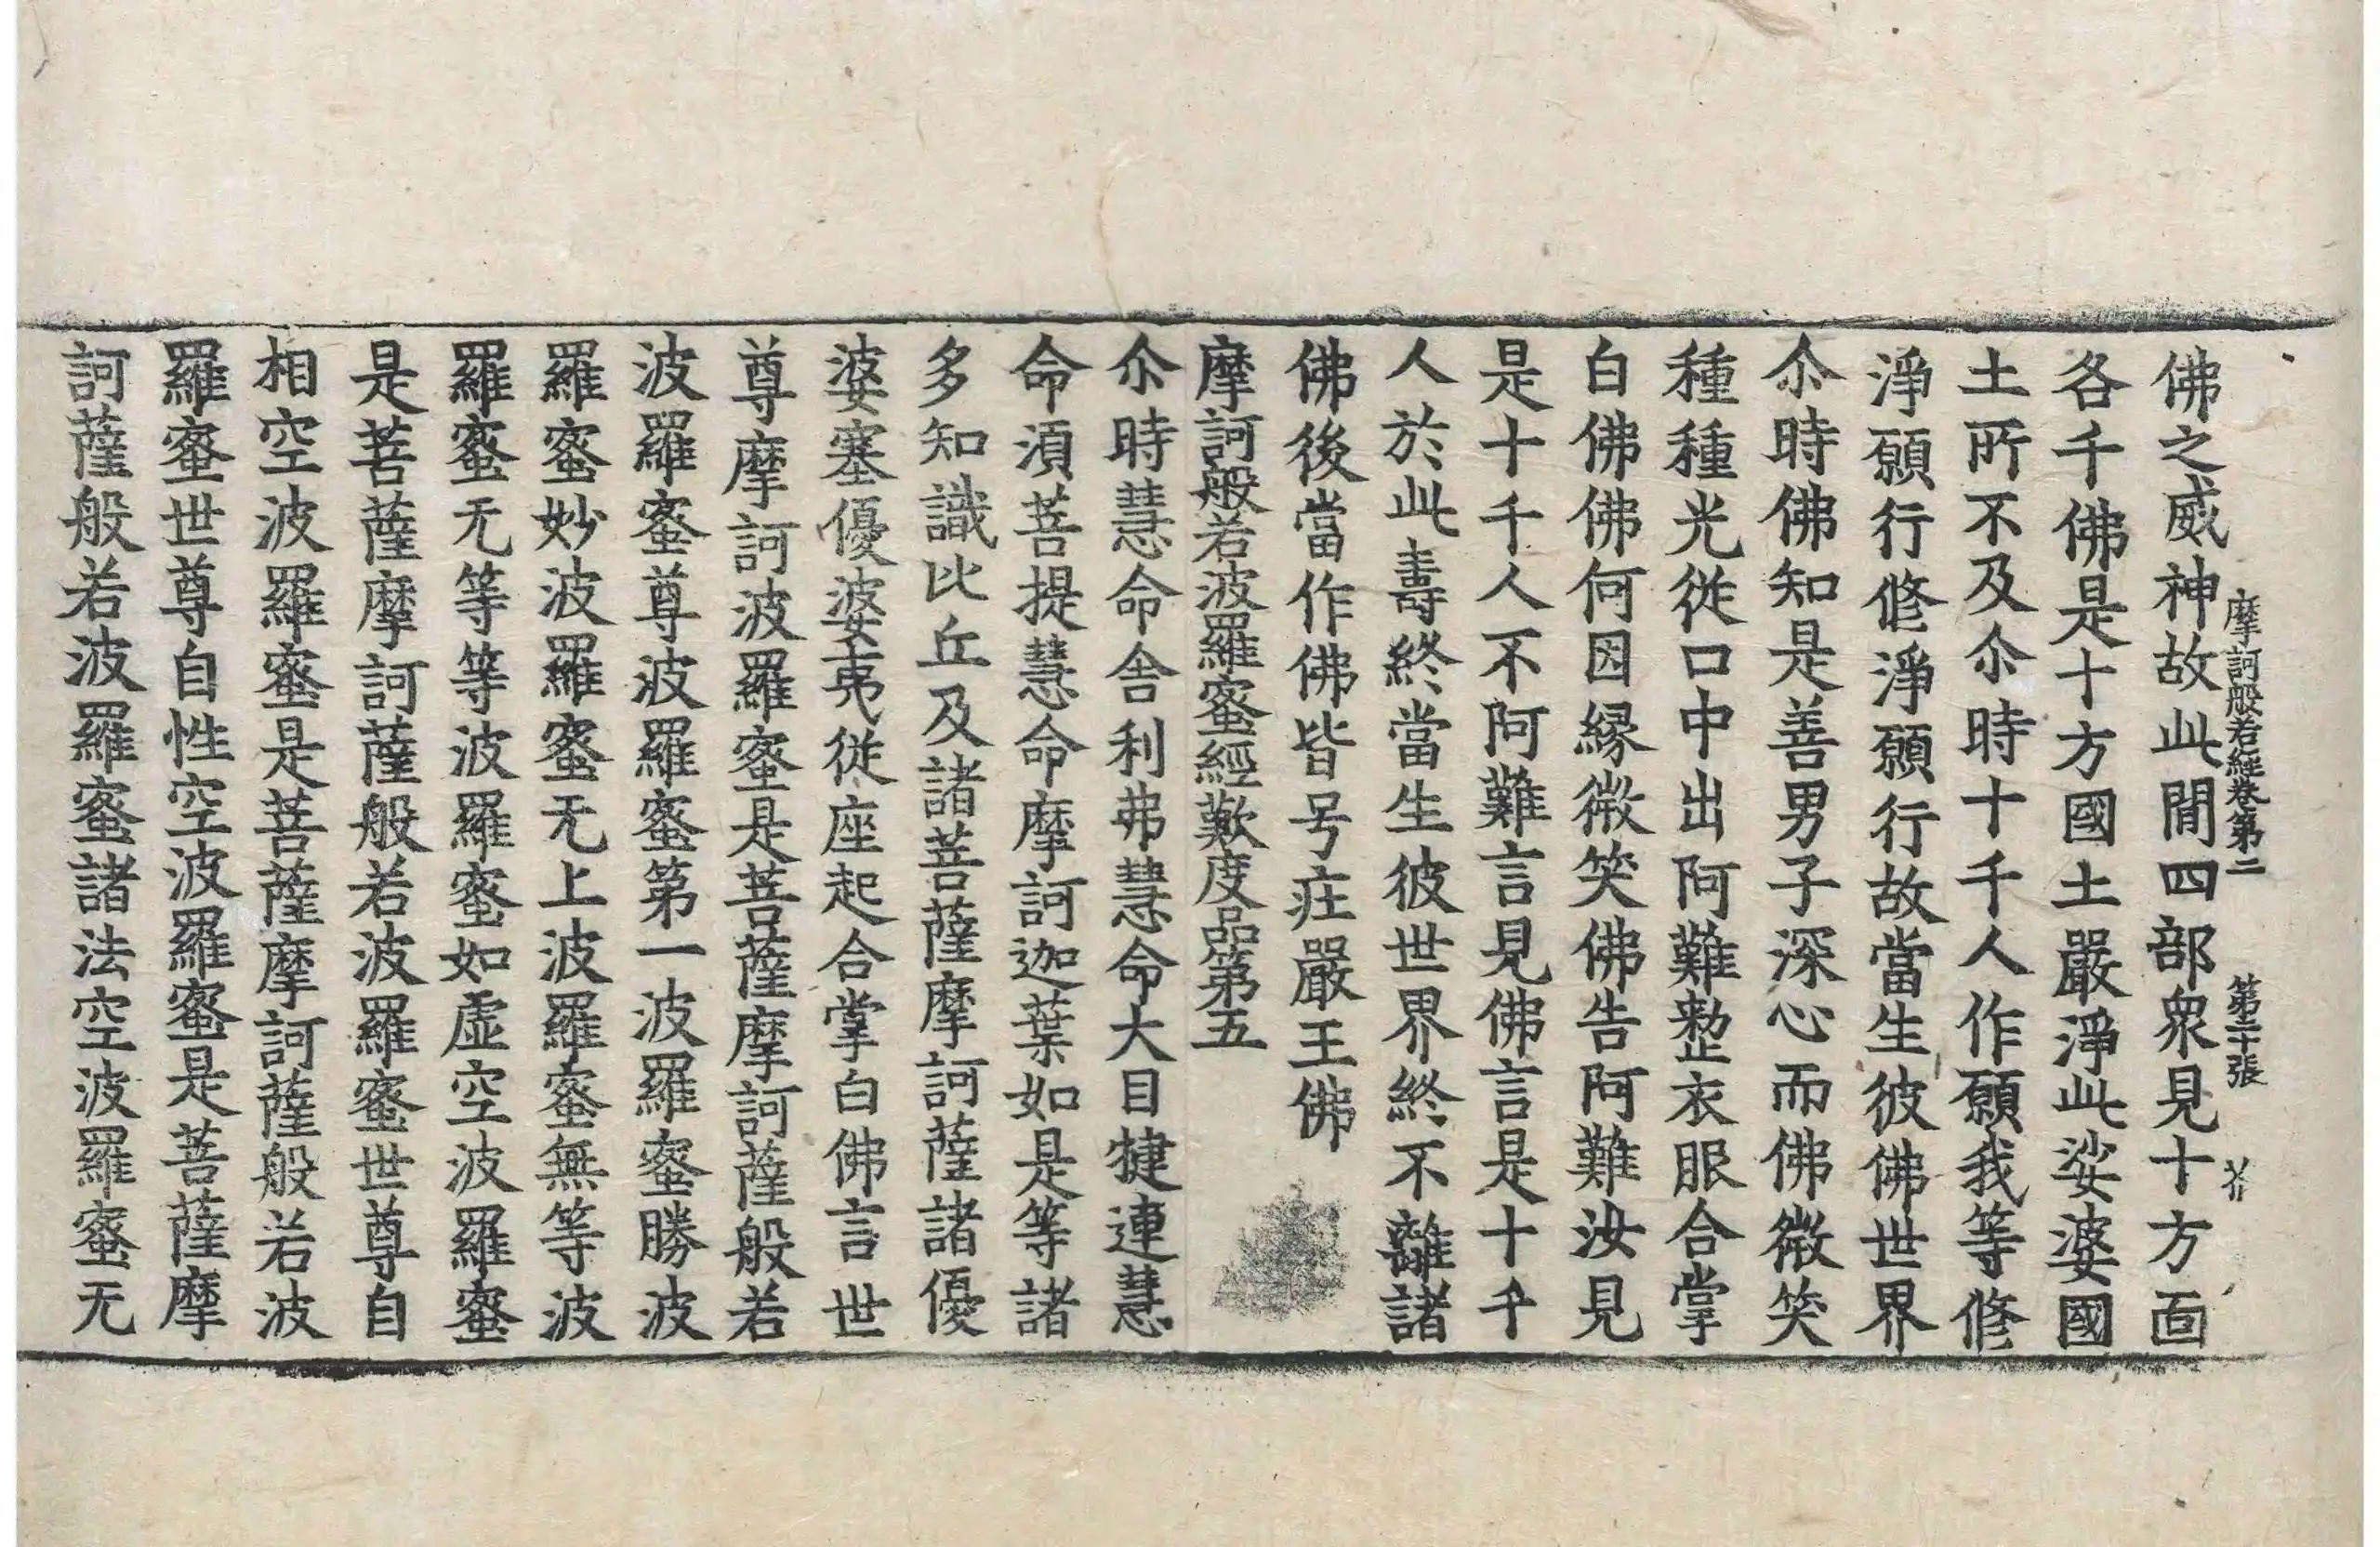 摩訶般若經卷第二　第三十張　芥
佛之威神故此間四部衆見十方面
各千佛是十方國土嚴淨此娑婆國
土所不及尒時十千人作願我等修
淨願行修淨願行故當生彼佛世界
尒時佛知是善男子深心而佛微笑
種種光從口中出阿難整衣服合掌
白佛佛何因緣微笑佛告阿難汝見
是十千人不阿難言見佛言是十千
人於此壽終當生彼世界終不離諸
佛後當作佛皆号庄嚴王佛
摩訶般若波羅蜜經歎度品第五
尒時慧命舍利弗慧命大目揵連慧
命湏菩提慧命摩訶迦葉如是等諸
多知識比丘及諸菩薩摩訶薩諸優
婆塞優婆夷從座起合掌白佛言世
尊摩訶波羅蜜是菩薩摩訶薩般若
波羅蜜尊波羅蜜第一波羅蜜勝波
羅蜜妙波羅蜜无上波羅蜜無等波
羅蜜无等等波羅蜜如虛空波羅蜜
是菩薩摩訶薩般若波羅蜜世尊自
相空波羅蜜是菩薩摩訶薩般若波
羅蜜世尊自性空波羅蜜是菩薩摩
訶薩般若波羅蜜諸法空波羅蜜无